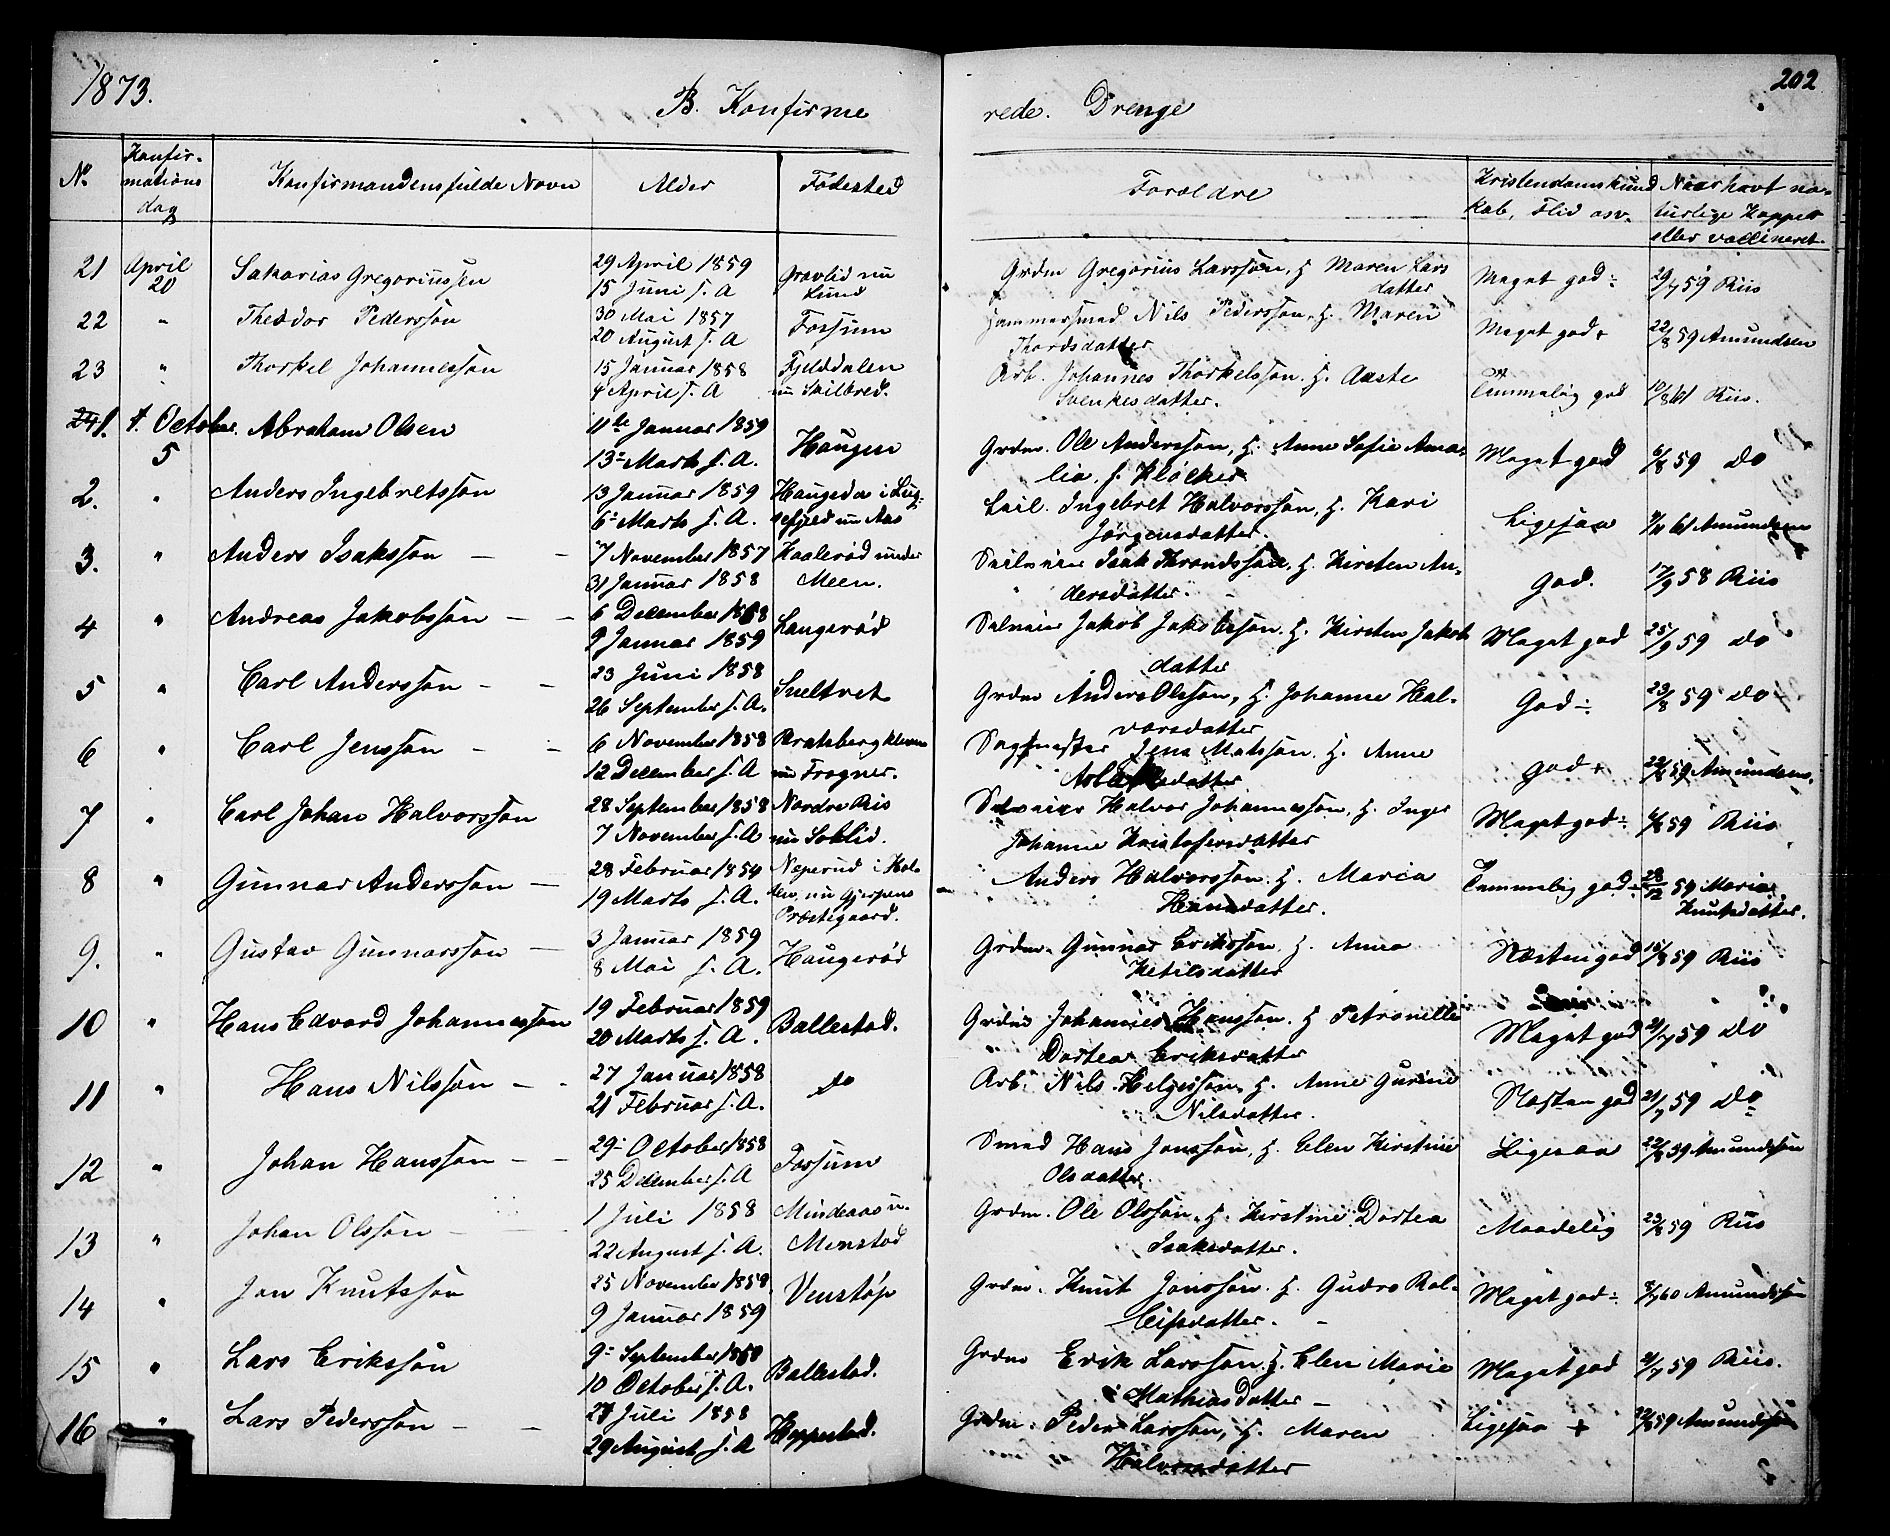 1873.
B. Konfirme
rede. Drenge
202
No. Konfir-
mations
dag
Konfirmandens fulde Navn
Alder
Fødested
Forældre
Kristendomskund
kab, Flid osv.
Naar havt na-
turlige Kopper
eller vaccineret.
21 April 20 Sakarias Gregoriussen 29 April 1859
15 Juni s. A Gravlid nu
Lund Grdm Gregorius Larsson, H. Maren Lars
datter Meget god ÷ 29/7 59 Riis
22 " Theodor Pedersson 30 Mai 1857
20 August s. A Fossum Hammersmed Nils Pedersson, H. Maren
Thordsdatter Meget god + 22/8 59 Amundsen
23 " Thorkel Johannesson 15 Januar 1858
4 April s. A Fjelddalen
nu Skilbred. Arb. Johannes Thorkelsson. H. Aaste
Svenkesdatter. Temmelig god 10/8 61 Riis.
1. October 5 Abraham Olsen 11te Januar 1859
13 Marts s. A. Haugen Grdm. Ole Andersson, H. Anne Sofie Ama-
lia, f. Kløcker Meget god 6/8 59 do
2. " Anders Ingebretsson 13 Januar 1859
6 Marts s. A. nu Aas Ingebret Halvorsson, H. Kari
Jørgensdatter. Ligesaa 61 Amundsen
3. " Anders Isaksson 7 November 1857
31 Januar 1858 Kaalerød under
Meen. Isak Throndsson, H. Kirsten An-
dersdatter. God. 17/9 58 Riis
4 " Andreas Jakobsson 6 December 1858
9 Januar 1859 Langerød Selveier Jakob Jakobsson. H. Kirsten Jakobs
datter Meget god 25/9 59 do
5 " Carl Andersson 23 Juni 1858
26 September s. A. Sneltvet Grdm Anders Olsson, H. Johanne Hal-
vorsdatter God ÷ 23/8 59 do
6 " Carl Jensson 6 November 1858
12 December s. A Bratsbergkleven
nu Frogner. Sagmester Jens Matsson. H. Anne
Aslaksdatter god + 22/8 59 Amundsen.
7 " Carl Johan Halvorsson 28 September 1858
7 November s. A Nordre Riis
nu Soklid. Selveier Halvor Johannesson, H. Inger
Johanne Kristofersdatter Meget god ÷ 6/8 59 Riis
8 " Gunnar Andersson 28 Februar 1859
19 Marts s. A. Neperud i Hol-
den, nu Gjerpens
Præstegaard. Anders Halvorsson. H. Maria
Hansdatter. Temmelig god ÷ 28/12 59 Maria
Knutsdatter.
9. " Gustav Gunnarsson 3 Januar 1859
8 Mai s. A. Haugerød Grdm. Gunnar Eriksson, H. Anne
Ketilsdatter Næsten god 15/8 59 Riis
10 " Hans Edvard Johannesson 19 Februar 1859
20 Marts s. A. Ballestad. Grdm Johannes Hansson. H Petronille
Dortea Eriksdatter Meget god 21/7 59 Do
11 " Hans Nilsson 27 Januar 1858
21 Februar s. A. do Arb. Nils Helgesson, H. Anne Gurine
Nilsdatter. Næsten god 21/7 59 Do
12 " Johan Hansson 29 October 1858
25 December s. A Fossum Smed Hans Jonsson, H. Elen Kirstine
Olsdatter. Ligesaa 22/8 59 Amundsen
13 " Johan Olsson 1 Juli 1858
22 August s. A. Mindeaas u.
Menstad Grdm. Ole Olsson, H. Kirstine Dortea
Isaksdatter. Maadelig 23/8 59 Riis
14 " Jon Knutsson 25 November 1858
9 Januar 1859 Venstøp Grdm. Knut Jonsson. H. Gudro Rol-
leifsdatter. Meget god ÷ 60 Amundsen
15 " Lars Eriksson 9 September 1858
10 October s. A. Ballestad. Grdm Erik Larsson. H. Elen Marie
Mathiasdatter Meget god 21/7 59 Riis.
16 " Lars Pedersson 27 Juli 1858
29 August s. A Hoppestad. Grdm. Peder Larsson, H. Maren
Halvorsdatter Ligesaa + 22/8 59 Amundsen